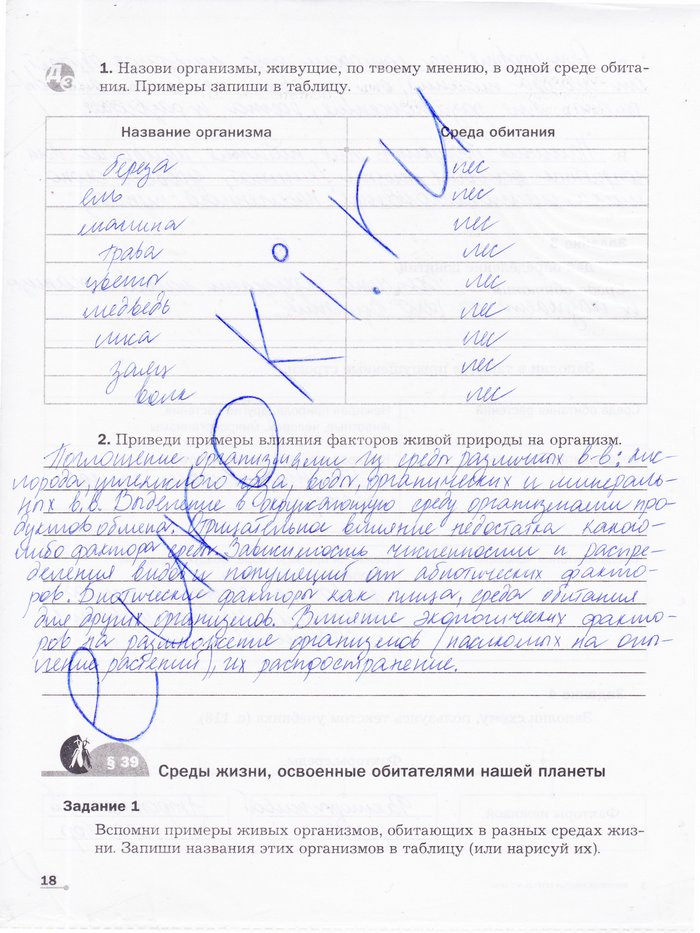 Дз
1. Назови организмы, живущие, по твоему мнению, в одной среде обита-
ния. Примеры запиши в таблицу.
Название организма Среда обитания
береза лес
ель лес
малина лес
трава лес
цветы лес
медведь лес
лиса лес
заяц лес
волк лес
2. Приведи примеры влияния факторов живой природы на организм.
Поглощение организмами из среды различных в-в: кис-
лорода, углекислого газа, воды, органических и минераль-
ных в.в. Выделение в окружающую среду организмами про-
дуктов обмена. Отрицательное влияние недостатка какого-
либо фактора среды. Зависимость численности и распре-
деления видов и популяций от абиотических факто-
ров. Биотические факторы как пища, среда обитания
для других организмов. Влияние экологических факто-
ров на размножение организмов (насекомых на опы-
ление растений), их распространение.
§ 39
Среды жизни, освоенные обитателями нашей планеты
Задание 1
Вспомни примеры живых организмов, обитающих в разных средах жиз-
ни. Запиши названия этих организмов в таблицу (или нарисуй их).
18